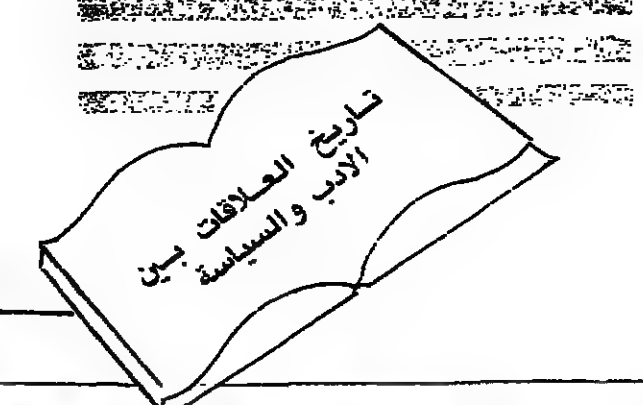 تاريخ العلاقات بين
الادب والسياسة